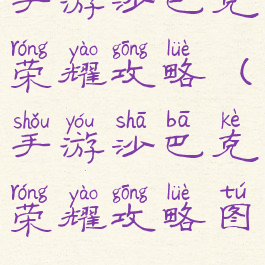 手游沙巴克
róng yào gōng lüè
荣耀攻略(
shǒu yóu shā bā kè
手游沙巴克
róng yào gōng lüè tú
荣耀攻略图